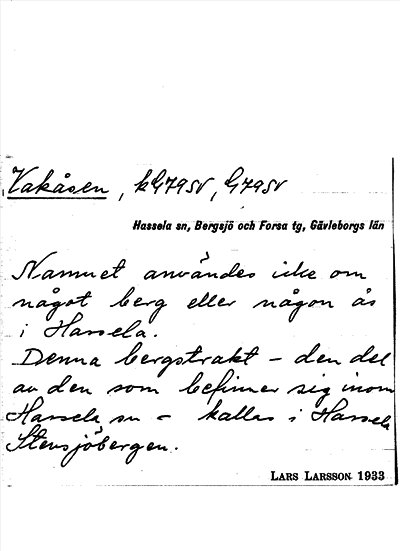 Vakåsen, kG79SV, G79SV
Hassela sn, Bergsjö och Forsa tg, Gävleborgs län
Namnet användes icke om
något berg eller någon ås
i Hassela.
Denna bergstrakt – den del
av den som befinner sig inom
Hassela sn – kallas i Hassela
Stensjöbergen.
LARS LARSSON 1933